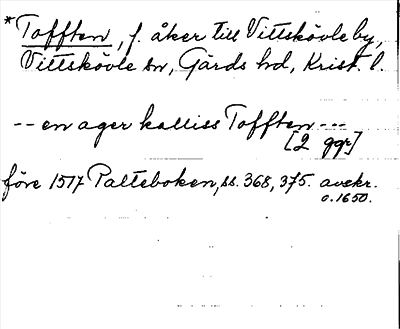 *Tofften, f. åker till Vittskövle by,
Vittskövle sn, Gärds hd, Krist. l.
-- en ager kalliss Tofften ---
[2 ggr]
före 1517 Palteboken, ss. 368, 375. avskr.
o. 1650.